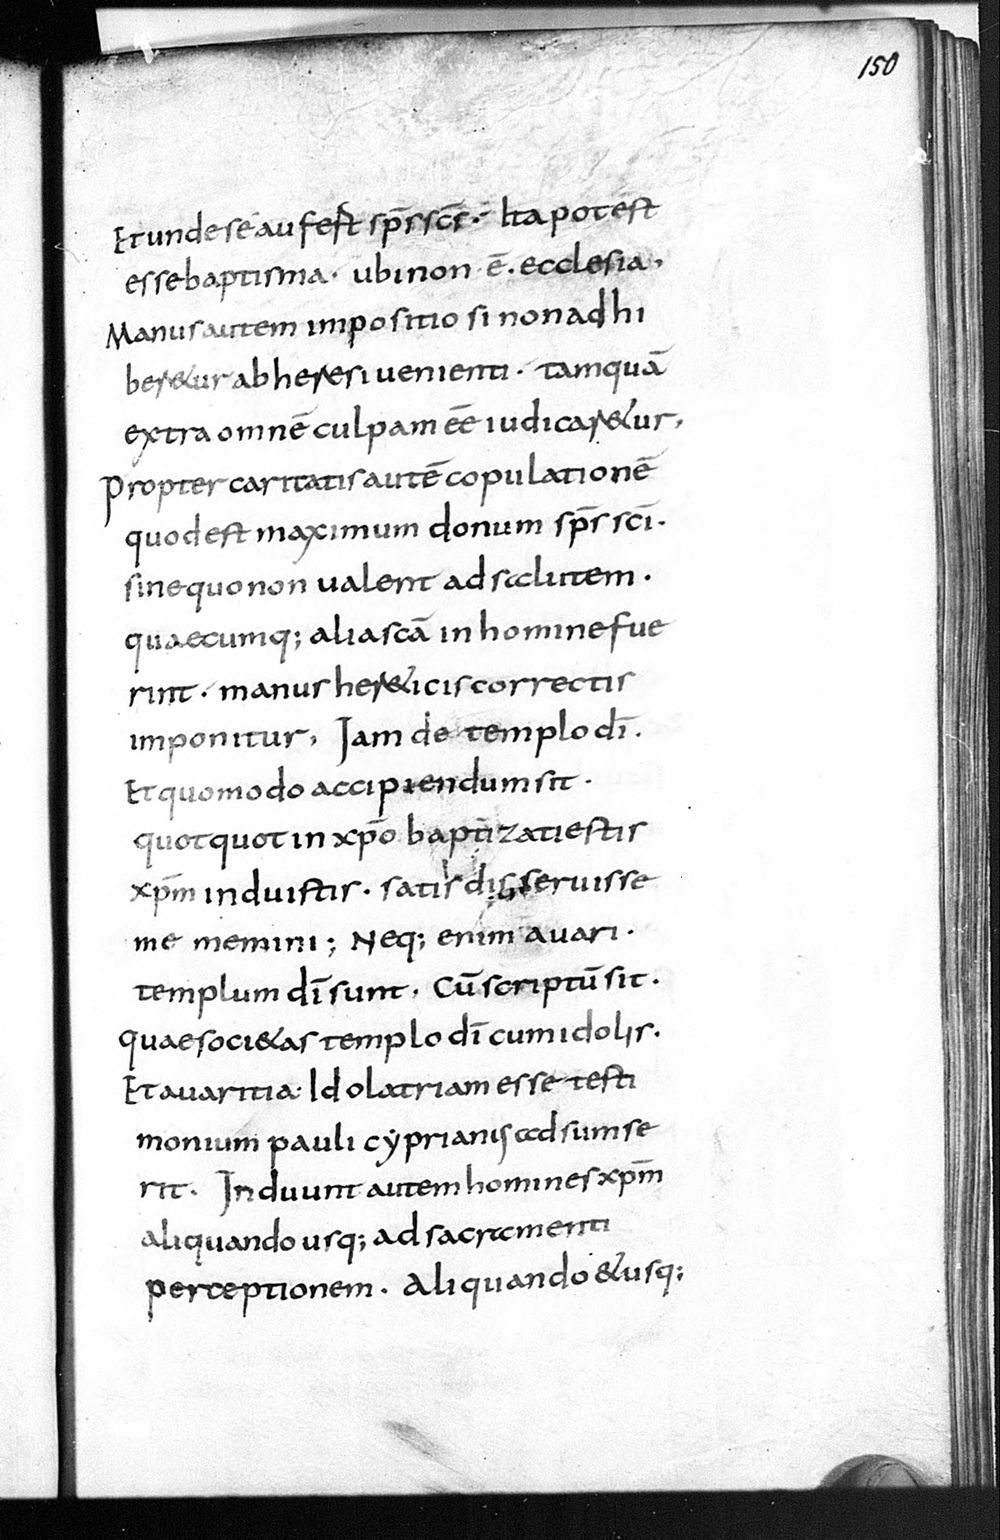 150
Et unde se aufest sp̄s sc̄s. Ita potest
esse baptisma· ubi non ē. ecclesia,
Manus autem impositio si non adhi
ber&ur ab heresi uenienti· tamquā
extra omnē culpam ēe iudicar&ur,
Propter caritatis autē copulationē
quod est maximum donum sp̄s sc̄i.
sine quo non ualent ad salutem.
quaecumq; alia scā in homine fue
rint· manus her&icis correctis
imponitur, Jam de templo dī.
Et quomodo accipiendum sit.
quotquot in xp̄o baptizati estis
xp̄m induistis. satis disseruisse
me memini; Neq; enim auari.
templum dī sunt. Cū scriptū sit.
quae soci&as templo dī cum idolis.
Et auaritia· Idolatriam esse testi
monium pauli cẏprianus adsumse
rit. Induunt autem homines xp̄m
aliquando usq; ad sacramenti
perceptionem. Aliquando & usq;